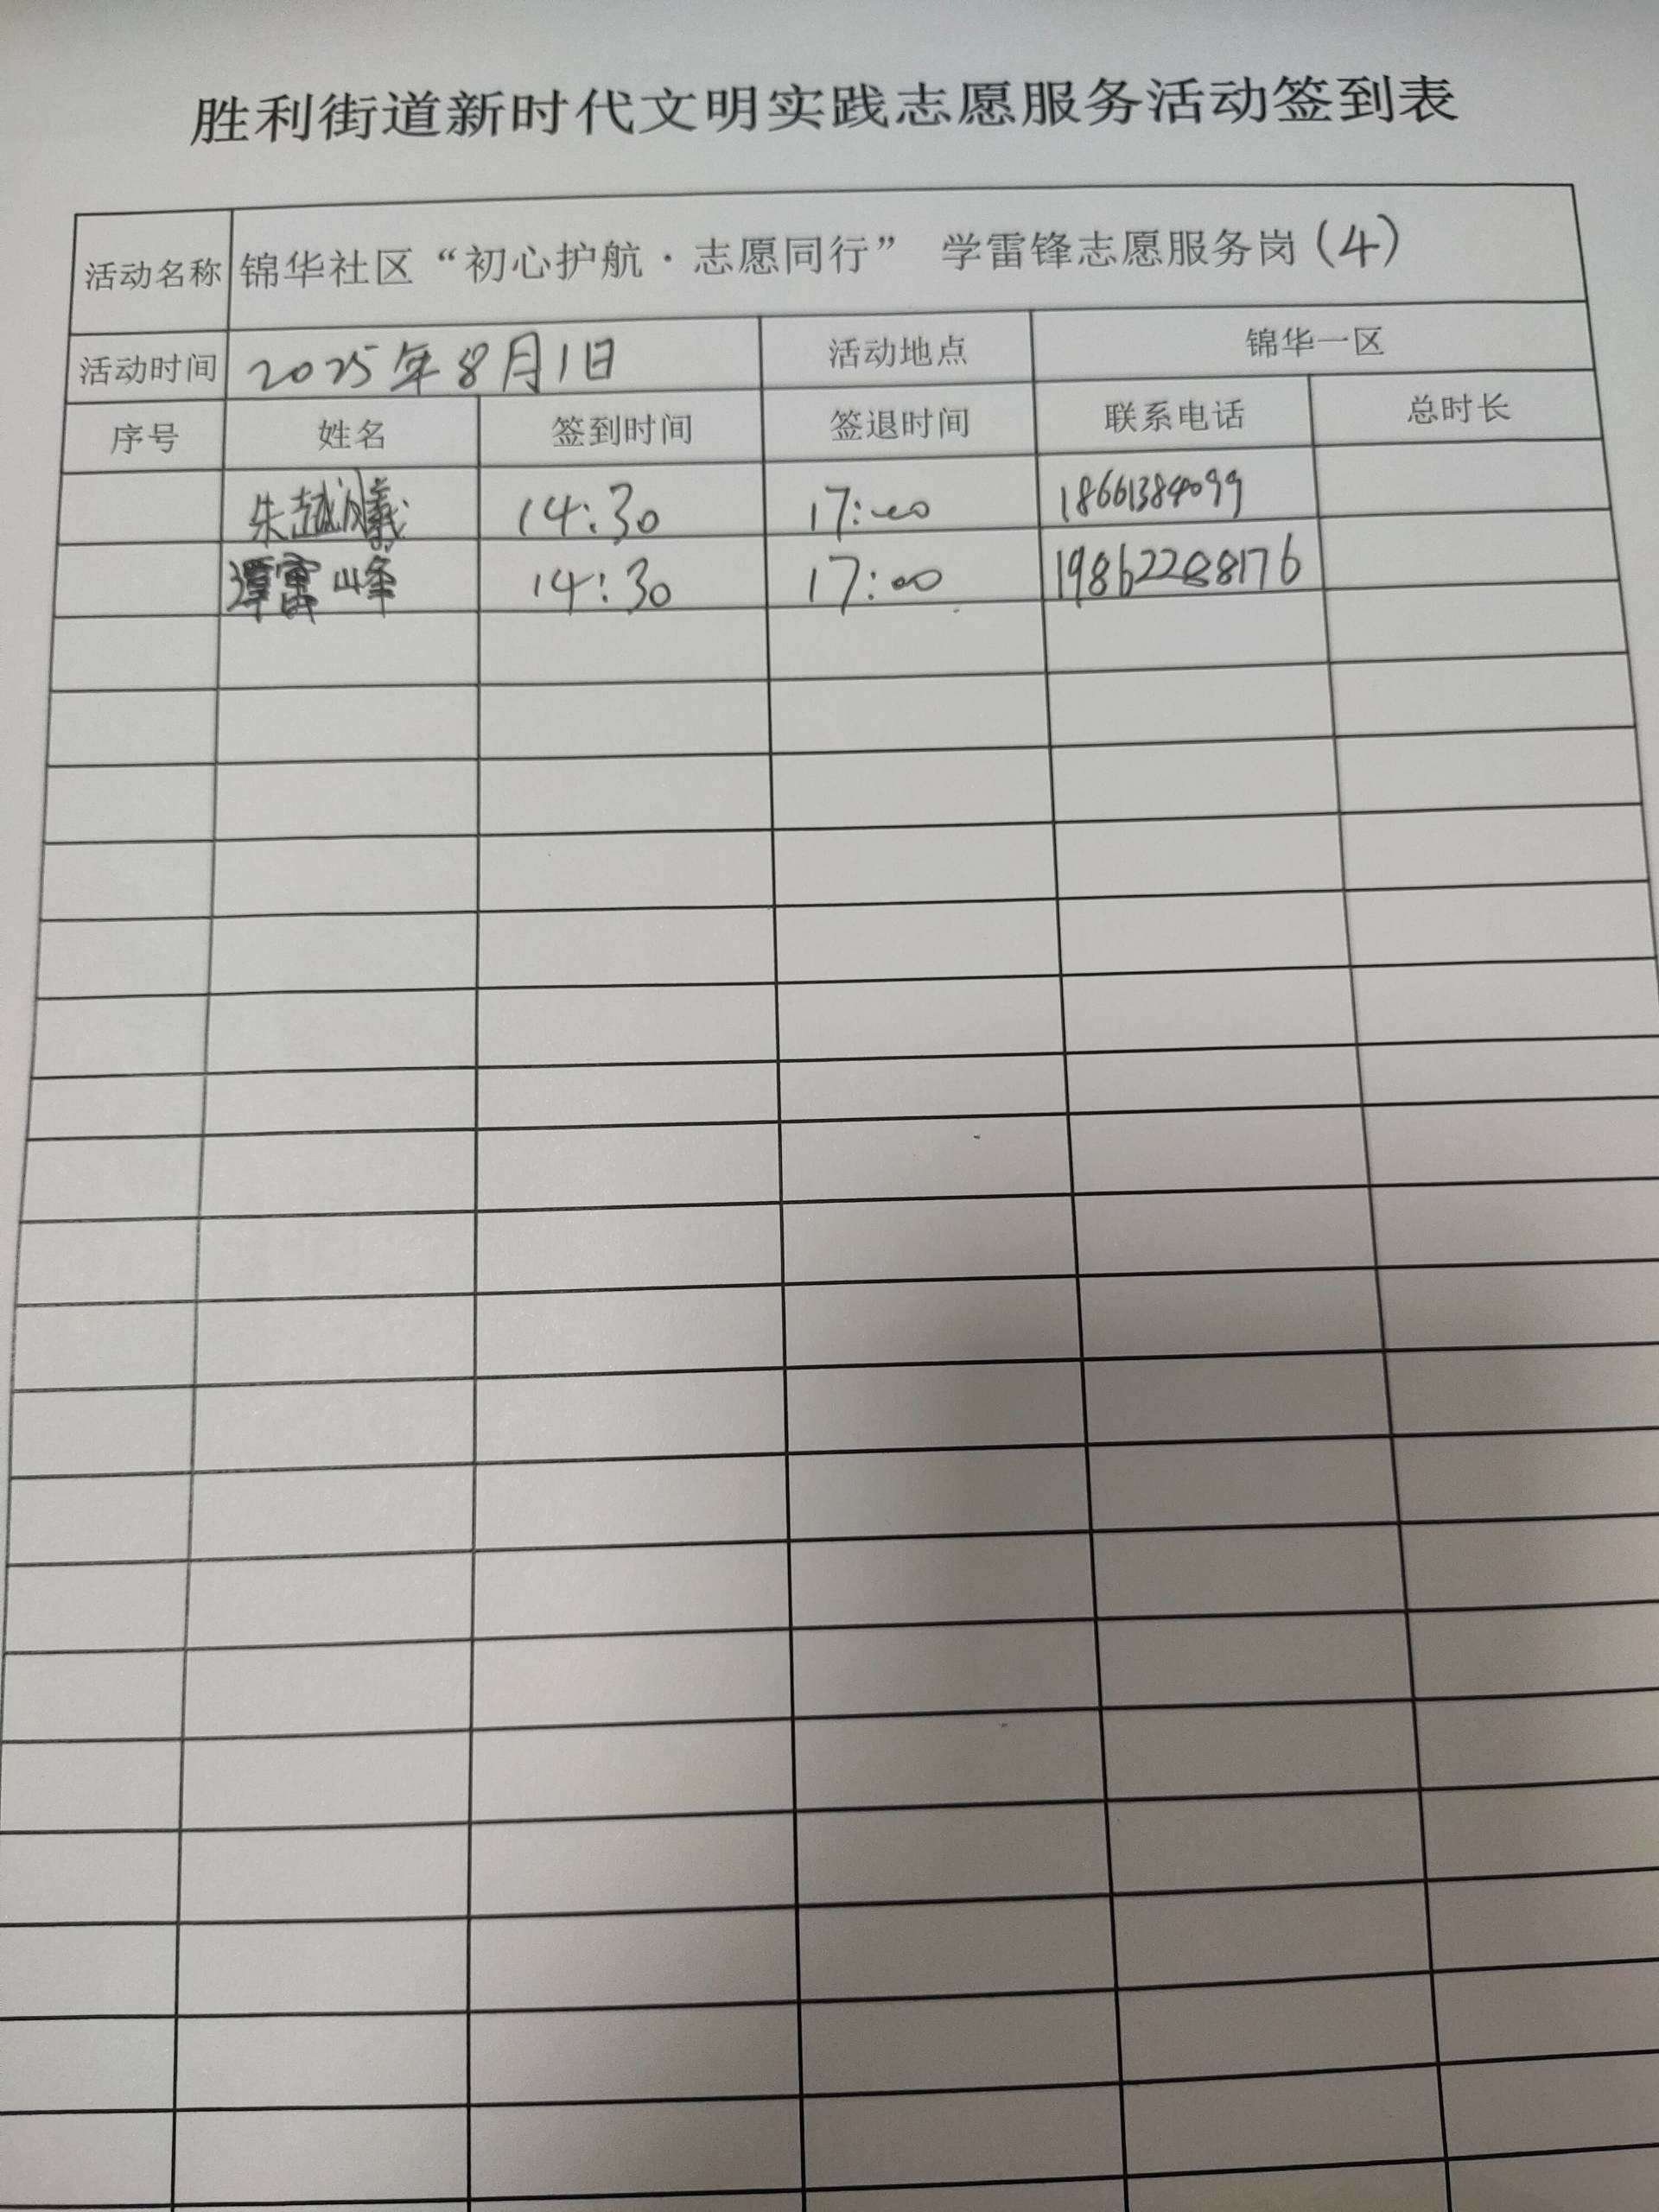 胜利街道新时代文明实践志愿服务活动签到表
活动名称 锦华社区“初心护航·志愿同行” 学雷锋志愿服务岗(4)
活动时间 2025年8月1日 活动地点 锦华一区
序号 姓名 签到时间 签退时间 联系电话 总时长
朱越 14:30 17:00 18661384099
谭雷峰 14:30 17:00 19862288176